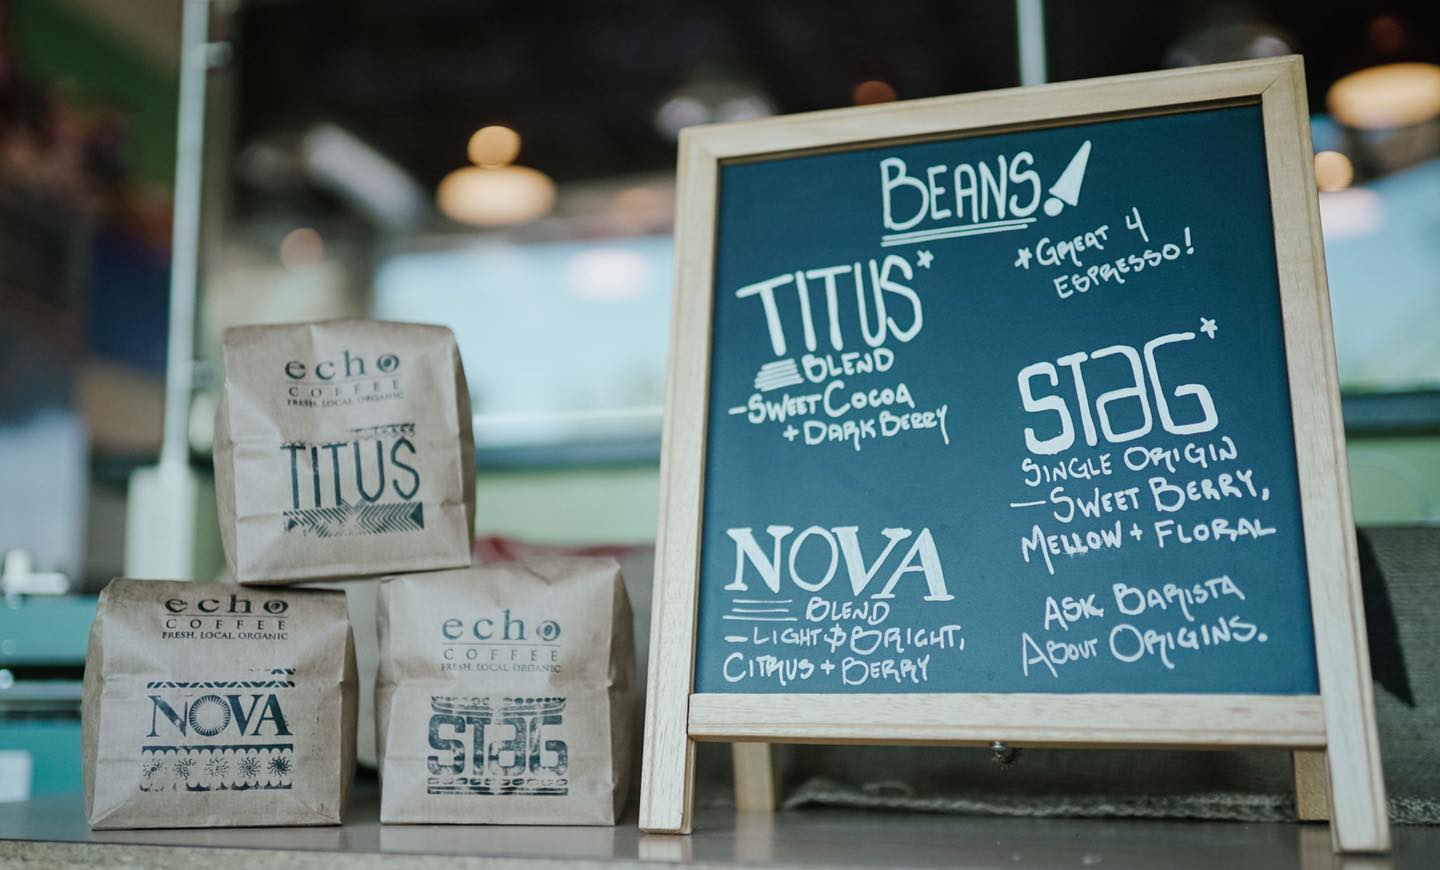 echo
COFFEE
FRESH. LOCAL. ORGANIC
TITUS
echo
COFFEE
FRESH. LOCAL. ORGANIC
NOVA
echo
COFFEE
FRESH. LOCAL. ORGANIC
STaG
BEANS!
*GREAT 4
ESPRESSO!
TITUS*
BLEND
-SWEET COCOA
+ DARK BERRY
STaG*
SINGLE ORIGIN
-SWEET BERRY,
MELLOW + FLORAL
NOVA
BLEND
-LIGHT & BRIGHT,
CITRUS + BERRY
ASK BARISTA
ABOUT ORIGINS.